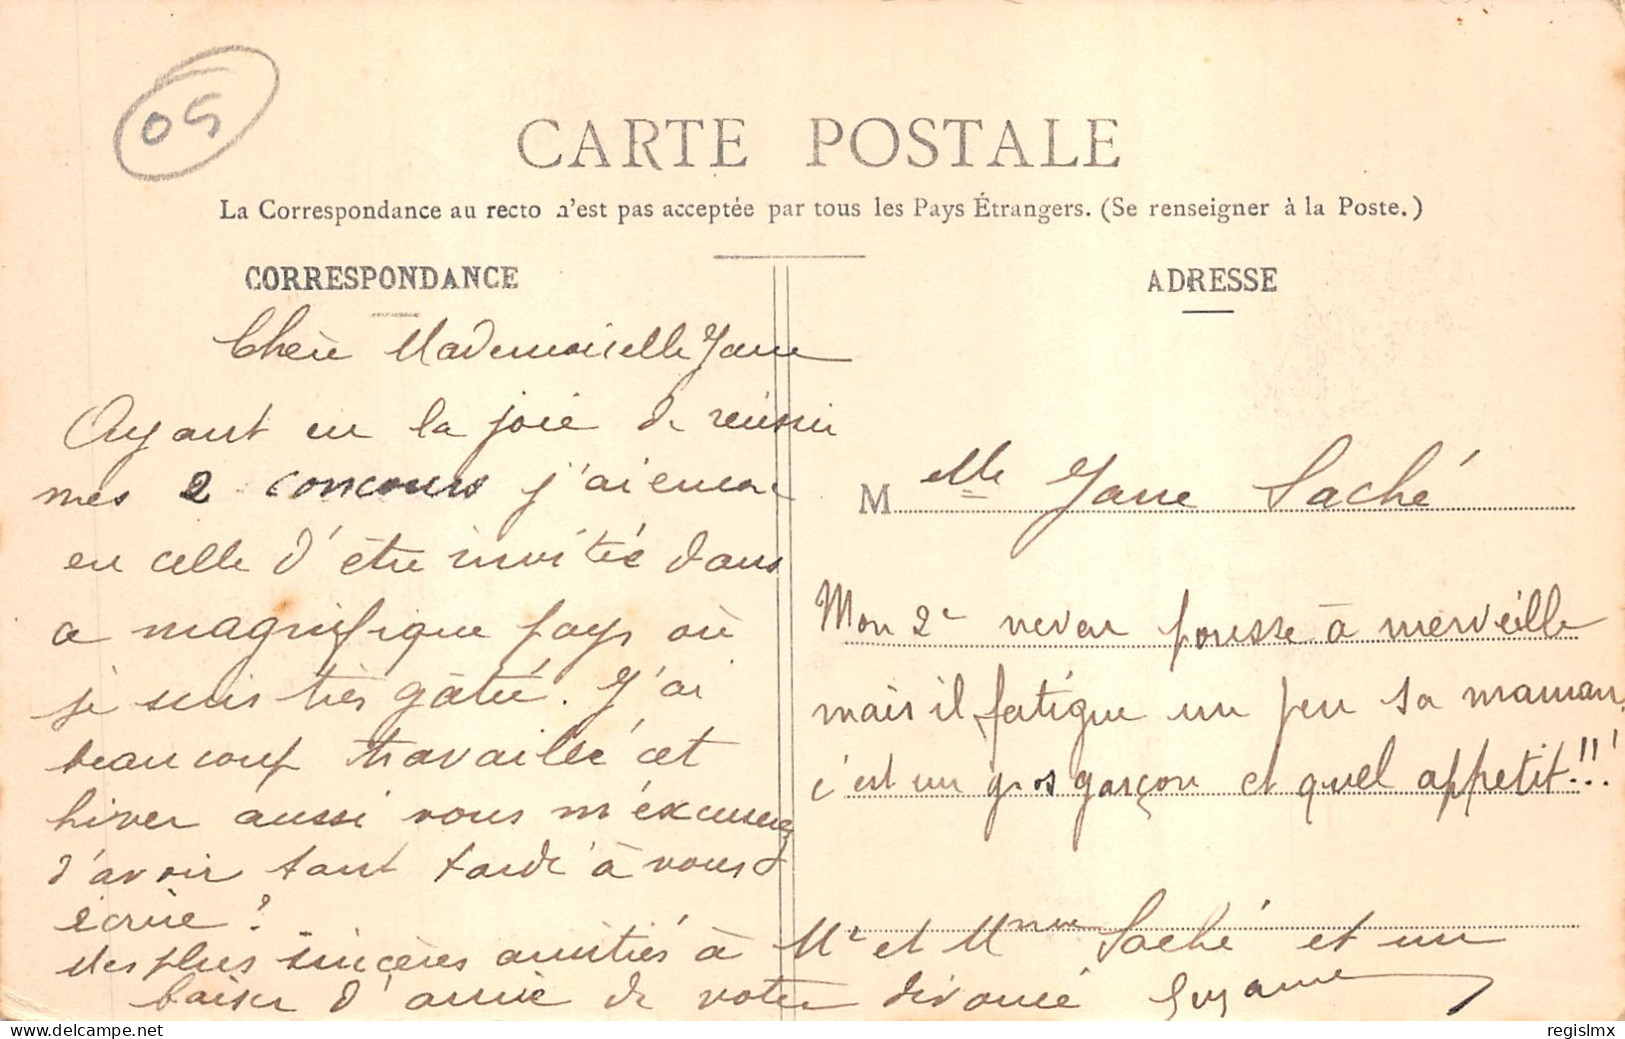 05
CARTE POSTALE
La Correspondance au recto n'est pas acceptée par tous les Pays Étrangers. (Se renseigner à la Poste.)
CORRESPONDANCE
Chère Mademoiselle Jane
Ayant eu la joie de réussir
mes 2 concours j'ai encore
eu celle d'être invitée dans
ce magnifique pays où
je suis très gâtée. J'ai
beaucoup travaillé cet
hiver aussi vous m'excuserez
d'avoir tant tardé à vous
écrire !
Mes plus sincères amitiés à Mr et Mme Saché et un
baiser d'amie de votre dévouée Suzanne
ADRESSE
Melle Jane Saché
Mon 2e neveu pousse à merveille
mais il fatigue un peu sa maman,
c'est un gros garçon et quel appetit!!!
www.delcampe.net
regislmx